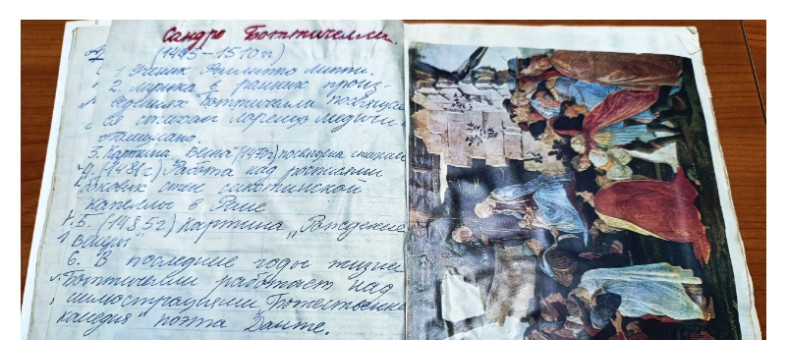 Сандро Боттичелли.
(1445-1510гг)
1. Ученик Филиппо Липпи.
2. Лирика в ранних произ-
ведениях Боттичелли
со стихами Лоренцо Медичи
3. Картина Весна (1478г) посвящена стихам
4. (1481г) Работа над росписями
боковых стен сикстинской
капеллы в Риме
5. (1485г) Картина „Рождение
Венеры"
6. В последние годы жизни
Боттичелли работает над
иллюстрациями Божественная
комедия" поэта Данте.